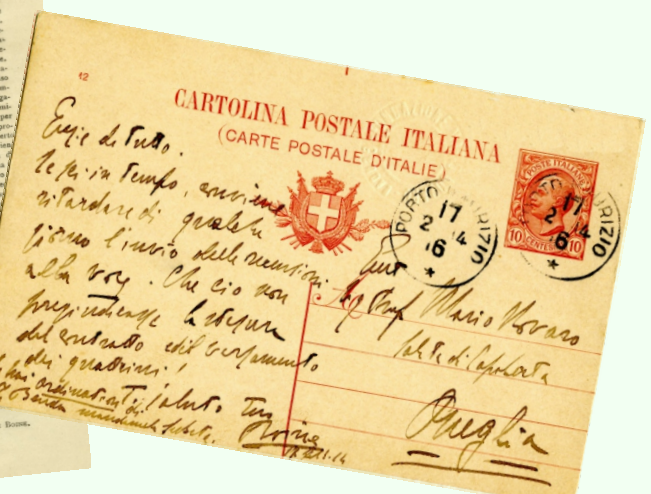 12
CARTOLINA POSTALE ITALIANA
(CARTE POSTALE D'ITALIE)
POSTE ITALIANE
10 CENTES 10
PORTO MAURIZIO
17
2 14
16
PORTO MAURIZIO
17
2 14
16
Grazie di tutto.
Se sei in tempo, conviene
ritardare di qualche
giorno l'invio delle recensioni
alla Voce. Che ciò non
pregiudicasse la stesura
del contratto e il versamento
dei quattrini!
hai ordinati ti saluto tuo
Banda
Boine
14
Prof Mario Novaro
Salita di Capoberta
Oneglia